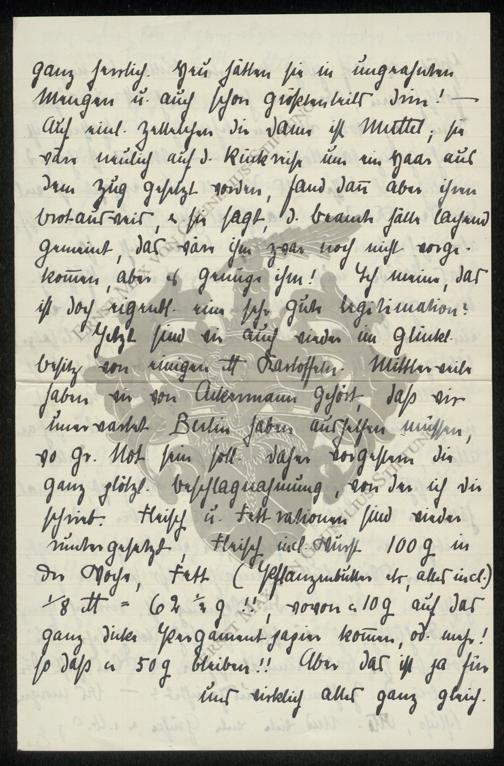 ganz herrlich. Heu hätten sie in ungeahnten
Mengen u. auch schon größtenteils drin! —
Auf einl. Zettelchen die Dame ist Muttel; sie
wäre neulich auf d. Rückreise um ein Haar aus
dem Zug gesetzt worden, fand dann aber ihren
Brotausweis, u. sie sagt, d. Beamte hätte lachend
gemeint, das wäre ihm zwar noch nicht vorge-
kommen, aber es genüge ihm! Ich meine, das
ist doch eigentl. eine sehr gute Legitimation?
Jetzt sind wir auch wieder im glückl.
Besitz von einigen ℔ Kartoffeln. Mittlerweile
haben wir von Ackermann gehört, daß wir
unerwartet Berlin haben aushelfen müssen,
wo gr. Not sein soll. Daher vorgestern die
ganz plötzl. Beschlagnahmung, von der ich dir
schrieb. Fleisch u. Fett rationen sind wieder
runtergesetzt. Fleisch incl. Wurst 100 g in
der Woche, Fett (Pflanzenbutter etc, alles incl.)
1/8 ℔ = 62 1/2 g !!, wovon c 10 g auf das
ganz dicke Pergamentpapier kommen, od. mehr!
so daß c 50 g bleiben!! Aber das ist ja für
uns wirklich alles ganz gleich.
ERNST MAX VON GRUNELIUS-STIFTUNG
ERNST MAX VON GRUNELIUS-STIFTUNG